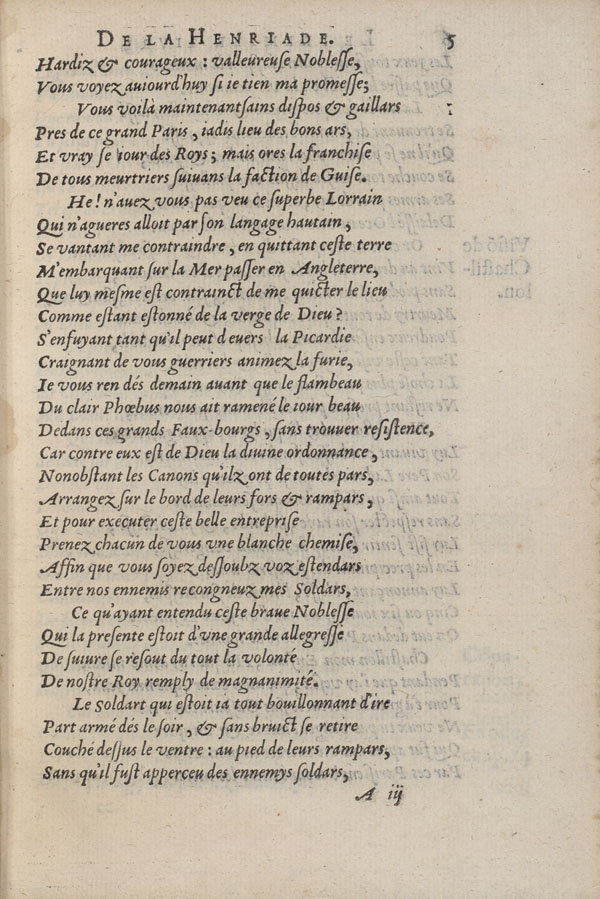 DE LA HENRIADE. 5
Hardiz & courageux : valleureuse Noblesse,
Vous voyez auiourd'huy si ie tien ma promesse;
Vous voilà maintenant sains dispos & gaillars
Pres de ce grand Paris, iadis lieu des bons ars,
Et vray seiour des Roys; mais ores la franchise
De tous meurtriers suiuans la faction de Guise.
He! n'auez vous pas veu ce superbe Lorrain
Qui n'agueres alloit par son langage hautain,
Se vantant me contraindre, en quittant ceste terre
M'embarquant sur la Mer passer en Angleterre,
Que luy mesme est contrainct de me quicter le lieu
Comme estant estonné de la verge de Dieu?
S'enfuyant tant qu'il peut d euers la Picardie
Craignant de vous guerriers animez la furie,
Ie vous ren dés demain auant que le flambeau
Du clair Phœbus nous ait ramené le iour beau
Dedans ces grands Faux-bourgs, sans trouuer resistence,
Car contre eux est de Dieu la diuine ordonnance,
Nonobstant les Canons qu'ilz ont de toutes pars,
Arrangez sur le bord de leurs fors & rampars,
Et pour executer ceste belle entreprise
Prenez chacun de vous vne blanche chemise,
Affin que vous soyez dessoubz voz estendars
Entre nos ennemis recongneuz mes Soldars,
Ce qu'ayant entendu ceste braue Noblesse
Qui la presente estoit d'vne grande allegresse
De suiure se resout du tout la volonte
De nostre Roy remply de magnanimité.
Le Soldart qui estoit ia tout bouillonnant d'ire
Part armé dés le soir, & sans bruict se retire
Couché dessus le ventre : au pied de leurs rampars,
Sans qu'il fust apperceu des ennemys soldars,
A iij